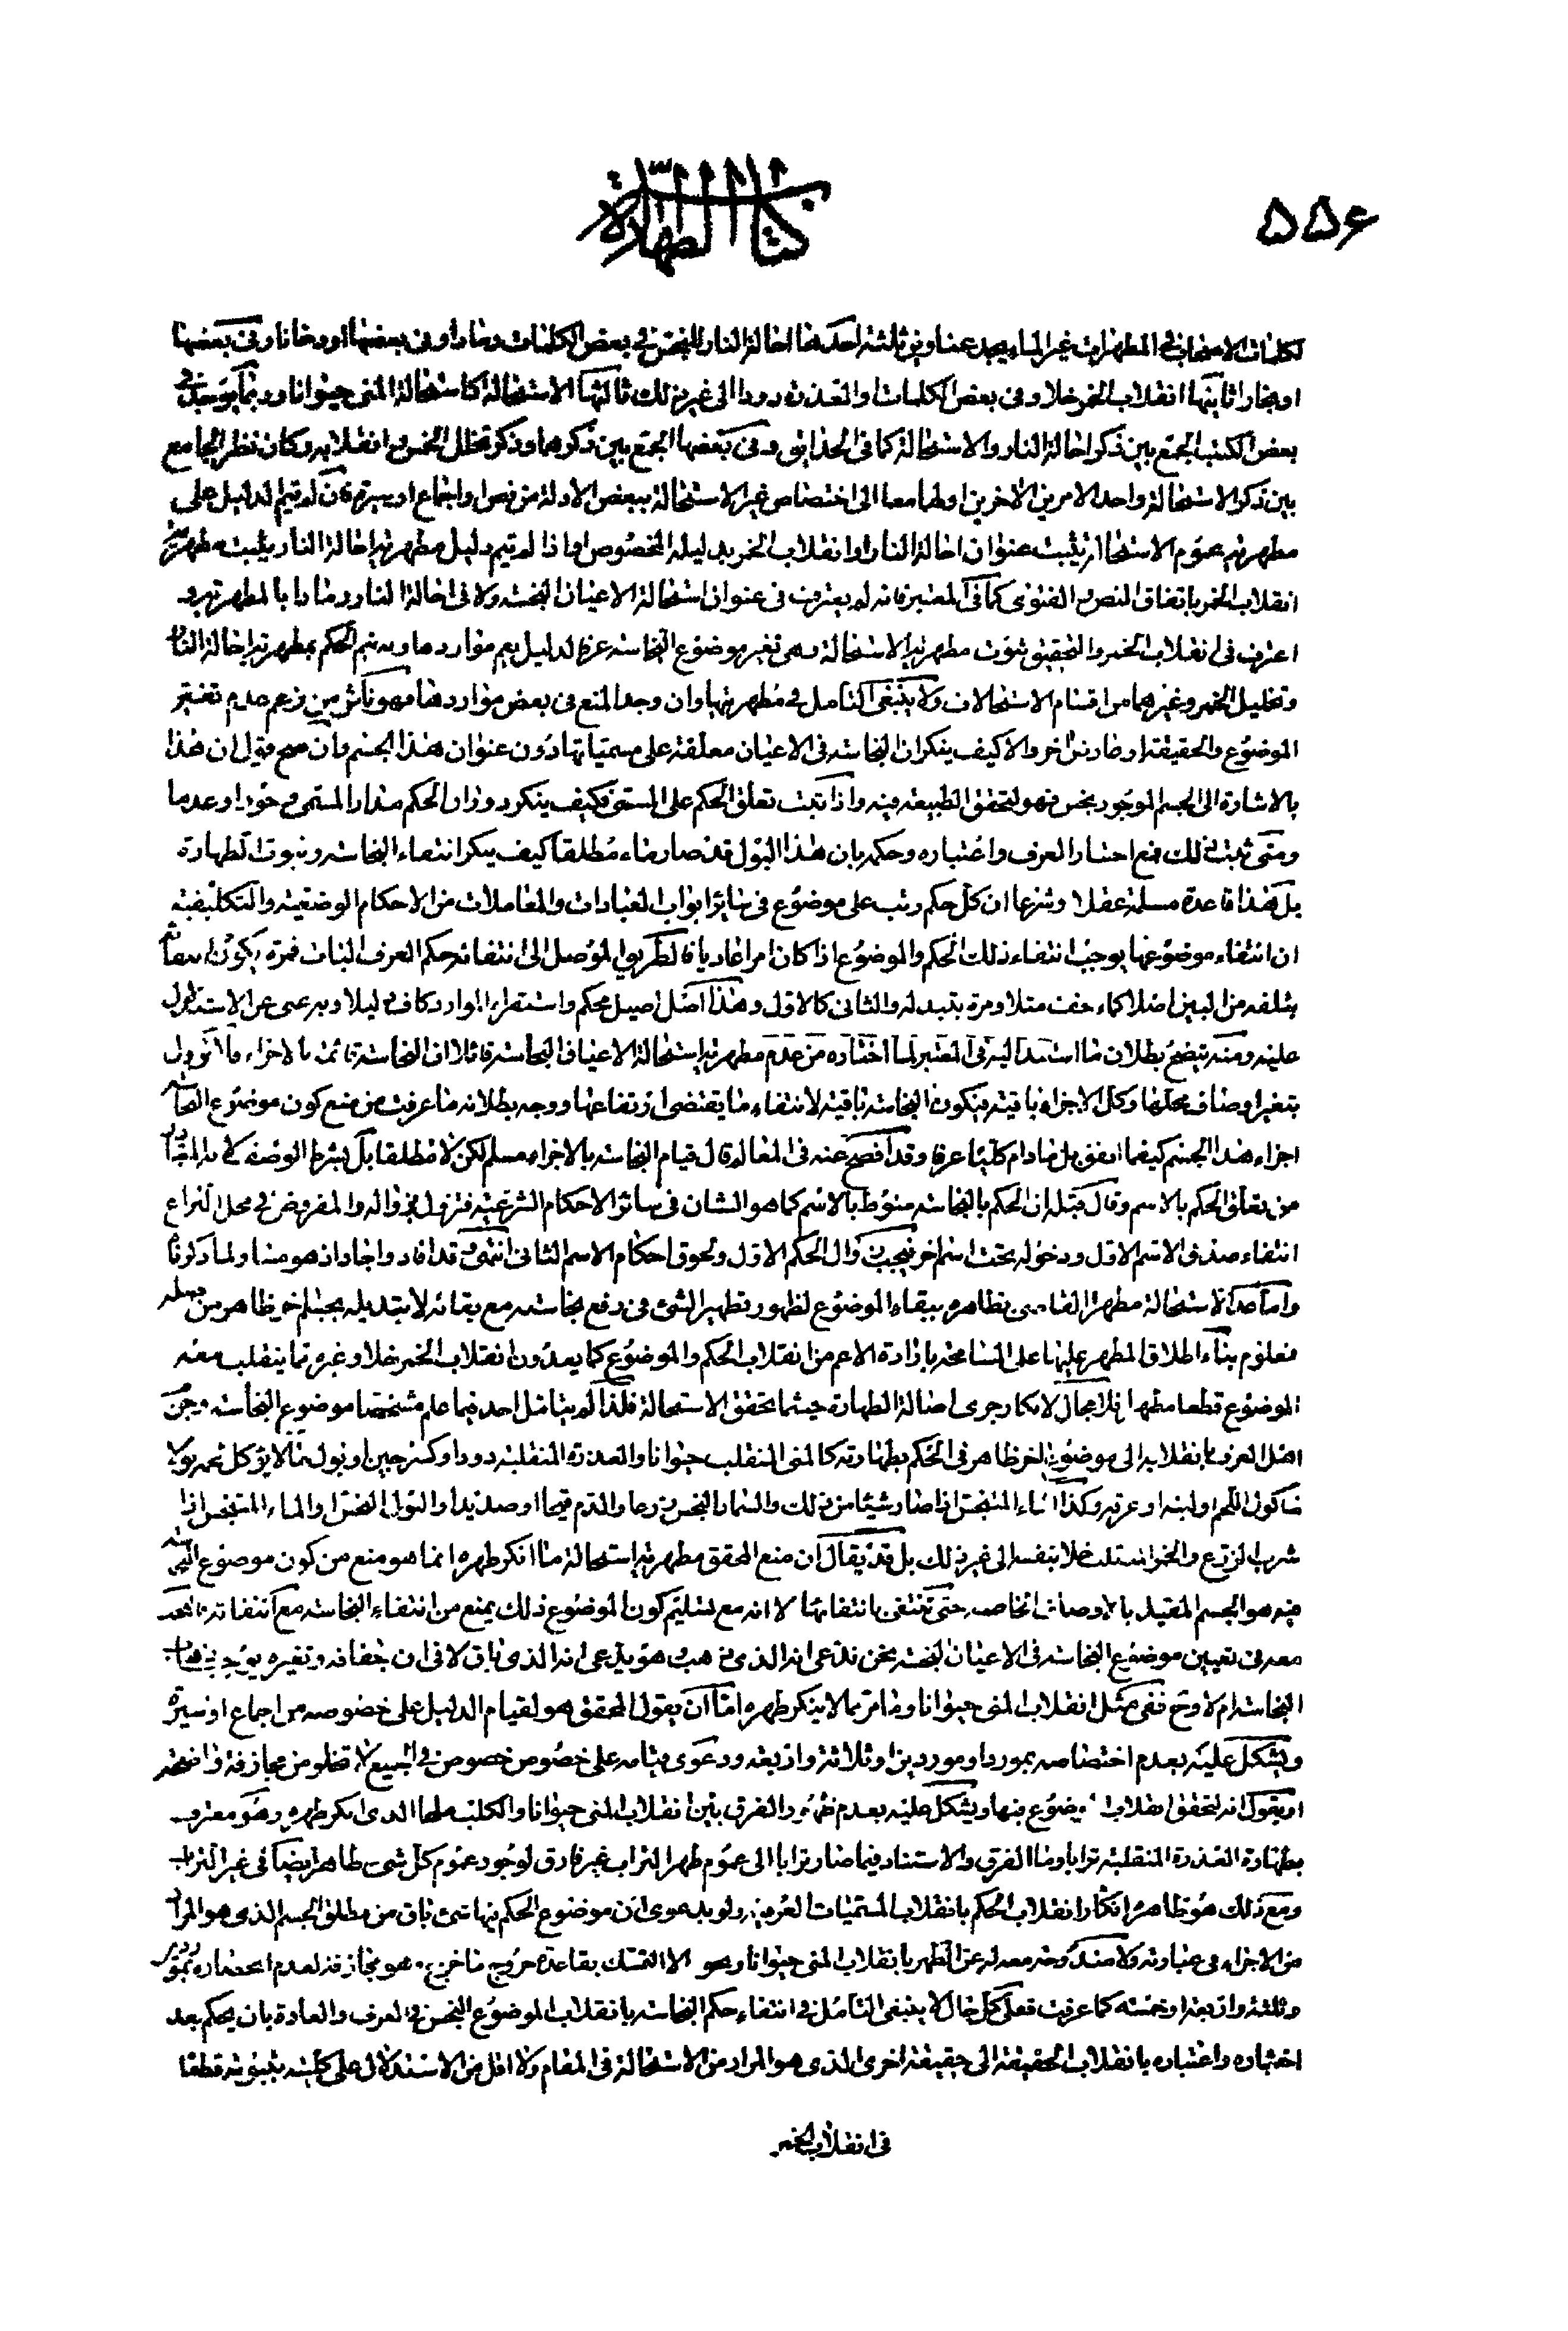 ۵۵۶
كتاب الطهارة
لكلمات الاصحاب في المطهرات غير الماء يجد عناوين ثلثة احدها احالة النار للنجس في بعض الكلمات رمادا وفى بعضها او دخانا وفى بعضها
او بخارا ثانيها انقلاب الخمر خلا وفى بعض الكلمات والعذرة دودا الى غير ذلك ثالثها الاستحالة كاستحالة المنى حيوانا وربما يوجد في
بعض الكتب الجمع بين ذكر احالة النار والاستحالة كما فى الحدايق وفى بعضها الجمع بين ذكرهما وذكر تخلل الخمر وانقلابه وكان نظر الجامع
بين ذكر الاستحالة واحد الامرين الاخرين او لهما معا الى اختصاص غير الاستحالة ببعض الادلة من نص او اجماع او سيرة فان لم يتم الدليل على
مطهرية عموم الاستحالة يثبت عنوان احالة النار او انقلاب الخمر بدليله المخصوص واذا لم يتم دليل مطهرية احالة النار يثبت مطهرية
انقلاب الخمر باتفاق النص والفتوى كما فى المعتبر فانه لم يعترف فى عنوان استحالة الاعيان النجسة ولا فى احالة النار رمادا بالمطهرية و
اعترف فى انقلاب الخمر والتحقيق ثبوت مطهرية الاستحالة وهى تغير موضوع النجاسة عرفا لدليل يعم مواردها وبه يتم الحكم بمطهرية احالة النار
وتخليل الخمر وغيرهما من اقسام الاستحالات ولا ينبغى التامل في مطهريتها وان وجد المنع فى بعض مواردها فهو ناش من زعم عدم تغير
الموضوع والحقيقة او طار نش اخر والا كيف ينكر ان النجاسة فى الاعيان معلقة على مسمياتها دون عنوان هذا الجسم وان صح قولى ان هذا
بالاشارة الى الجسم الموجود نجس فهو لتحقق الطبيعة فيه واذا ثبت تعلق الحكم على المسمى فكيف ينكر دوران الحكم مدار المسمى وجودا وعدما
ومتى ثبت ذلك مع اختبار العرف واعتباره وحكمه بان هذا البول قد صار ماء مطلقا كيف ينكر انتفاء النجاسة وثبوت الطهارة
بل هذا قاعدة مسلمة عقلا وشرعا ان كل حكم رتب على موضوع فى سائر ابواب العبادات والمعاملات من الاحكام الوضعية والتكليفية
ان انتفاء موضوعها يوجب انتفاء ذلك الحكم والموضوع اذا كان امرا عاديا فالطريق الموصل الى انتفائه حكم العرف البتات فمرة يكون انتفائه
بتلفه من البين اصلا كماء جفت مثلا ومرة بتبدله والثانى كالاول وهذا اصل اصيل محكم واستقراء الموارد كاف دليلا وبه غنى عن الاستدلال
عليه ومنه يتضح بطلان ما استند اليه فى المعتبر لما اختاره من عدم مطهرية استحالة الاعيان النجاسة قائلا ان النجاسة قائمة بالاجزاء فلا تزول
بتغير اوصاف محلها وكل الاجزاء باقية فيكون النجاسة باقية لانتفاء ما يقتضى ارتفاعها ووجه بطلانه ما عرفت من منع كون موضوع النجاسة
اجزاء هذا الجسم كيفما اتفق بل مادام كلبا عرفا وقد افصح عنه فى المعالم قال قيام النجاسة بالاجزاء مسلم لكن لا مطلقا بل بشرط الوصف
من تعلق الحكم بالاسم وقال قبله ان الحكم بالنجاسة منوط بالاسم كما هو الشان فى سائر الاحكام الشرعية فتزول بزواله والمفروض في محل النزاع
انتفاء صدق الاسم الاول ودخوله تحت اسم اخر فيجب زوال الحكم الاول ولحوق احكام الاسم الثانى انتهى وقد افاد واجاد اذ هو مساو لما ذكرنا
واما عد الاستحالة مطهرا القاضى بظاهره ببقاء الموضوع لظهور تطهير الشئ فى رفع نجاسته مع بقائه لا بتبديله بجسم اخر ظاهر من
فمعلوم بناء اطلاق المطهر عليها على المسامحة بارادة الاعم من انقلاب الحكم والموضوع كما يعدون انقلاب الخمر خلا وغيره مما ينقلب معه
الموضوع قطعا مطهرا فلا مجال لانكار جرى اصالة الطهارة حيثما تحقق الاستحالة فلذا لم يتامل احد فيما علم مشخصا موضوع النجاسة وجزم
اهل العرف بانقلابه الى موضوع اخر ظاهر فى الحكم بطهارته كالمنى المنقلب حيوانا والعذرة المنقلبة دودا وكسرجين او بول ما لا يؤكل
ماكول اللحم او لبنه او عرقه وكذا الماء المتنجس اذا صار شيئا من ذلك والثمار النجس زرعا والدم قيحا او صديدا والبول النجس والماء المتنجس اذا
شرب الزرع والخمر استلت خلا بنفسه الى غير ذلك بل قد يقال ان منع المحقق مطهرية استحالة ما انكر طهره انما هو منع من كون موضوع النجاسة
فيه هو الجسم المقيد بالاوصاف الخاصة حتى تنتفى بانتفائها لا انه مع تسليم كون الموضوع ذلك يمنع من انتفاء النجاسة مع انتفائه
معه فى تعيين موضوع النجاسة فى الاعيان النجسة نحن ندعى انه الذى ذهب وهو يدعى انه الذى باق لا فى ان جفافه وتغيره يوجب ذهاب
النجاسة ام لا وح ففى مثل انقلاب المنى حيوانا وما مر مما لا ينكر طهره اما ان يقول المحقق هو لقيام الدليل على خصوصه من اجماع او سيرة
ويشكل عليه بعدم اختصاصه بمورد او موردين او ثلاثة واربعة ودعوى قيامه على خصوص خصوص في الجميع لا تخلو من مجازفة واضحة
او يقول انه لتحقق انقلاب الموضوع فيها ويشكل عليه بعدم ظهور الفرق بين انقلاب المنى حيوانا والكلب ملحا الذى انكر طهره وهو معترف
بطهارة العذرة المنقلبة ترابا وما الفرق والاستناد فيما صار ترابا الى عموم طهر التراب غير فارق لوجود عموم كل شئ طاهر ايضا فى غير التراب
ومع ذلك هو ظاهر انكار انقلاب الحكم بانقلاب المسميات العرفية ولو بدعوى ان موضوع الحكم فيها شئ باق من مطلق الجسم الذى هو المراد
من الاجزاء فى عبارته ولا مندوحة معه له عن التطهير بانقلاب المنى حيوانا ونحوه الا التمسك بقاعدة خروج ما خرج وهو مجازفة لعدم انحصاره بمورد
وثلثة واربعة او خمسة كما عرفت فعلى كل حال لا ينبغى التامل في انتفاء حكم النجاسة بانقلاب الموضوع النجس في العرف والعادة بان يحكم بعد
اختباره واعتباره بانقلاب الحقيقة الى حقيقة اخرى الذى هو المراد من الاستحالة فى المقام ولا اقل من الاستدلال على كليته بثبوته قطعا
فى انقلاب الخمر